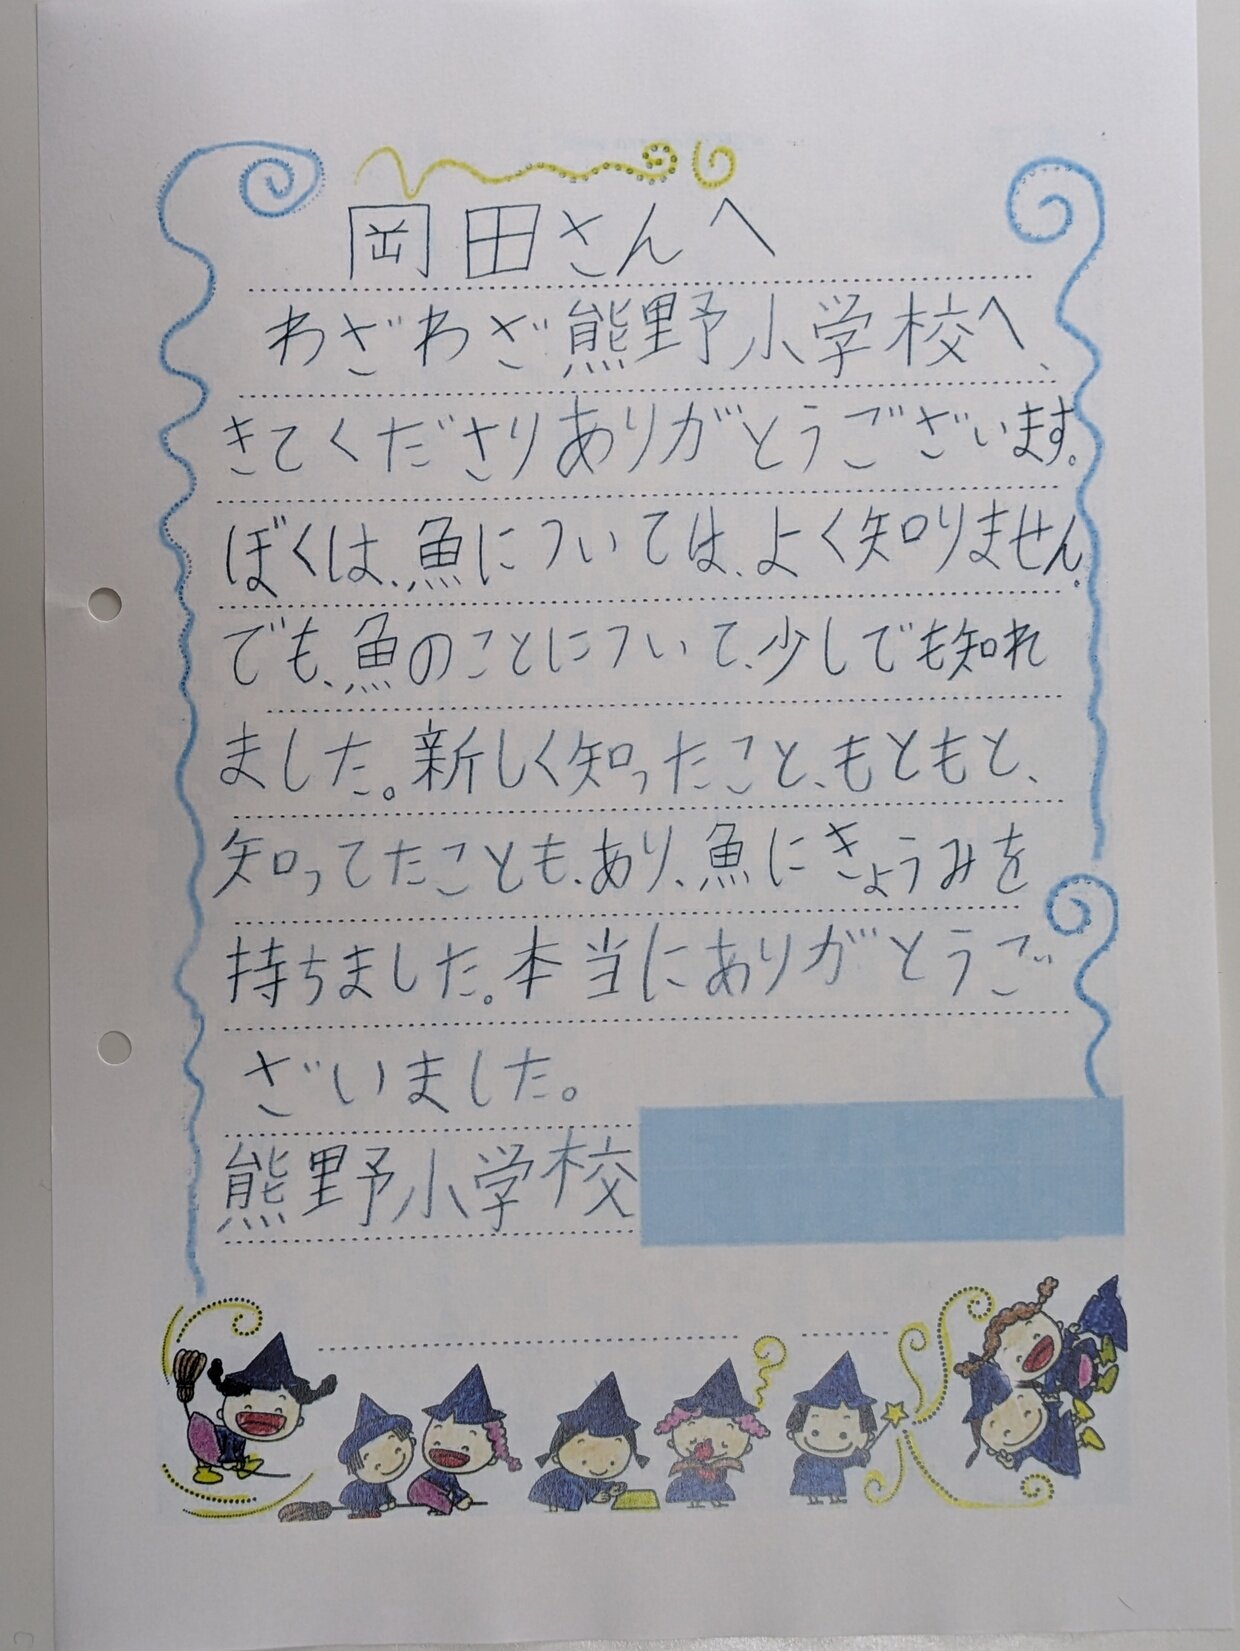 岡田さんへ
わざわざ熊野小学校へ、
きてくださりありがとうございます。
ぼくは、魚については、よく知りません。
でも、魚のことについて、少しでも知れ
ました。新しく知ったこと、もともと、
知ってたことも、あり、魚にきょうみを
持ちました。本当にありがとうご
ざいました。
熊野小学校